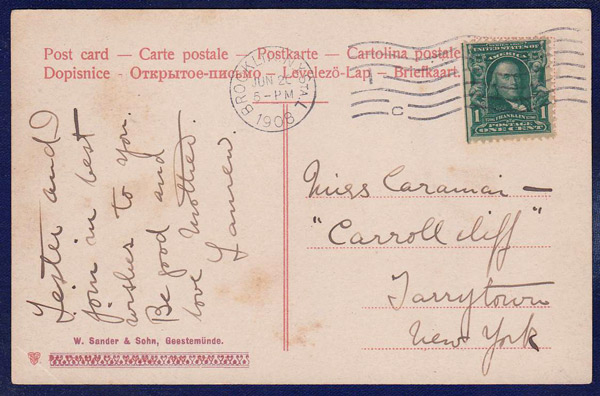 Post card — Carte postale — Postkarte — Cartolina postale
Dopisnice - Открытое-письмо - Levelező-Lap - Briefkaart.
BROOKLYN
JUN
5-PM
1908
C
UNITED STATES OF
AMERICA
FRANKLIN
1 POSTAGE 1
ONE CENT
Lester and I
join in best
wishes to you.
Be good and
love Mother.
Miss Caramai —
"Carroll Cliff"
Tarrytown
New York
W. Sander & Sohn, Geestemünde.